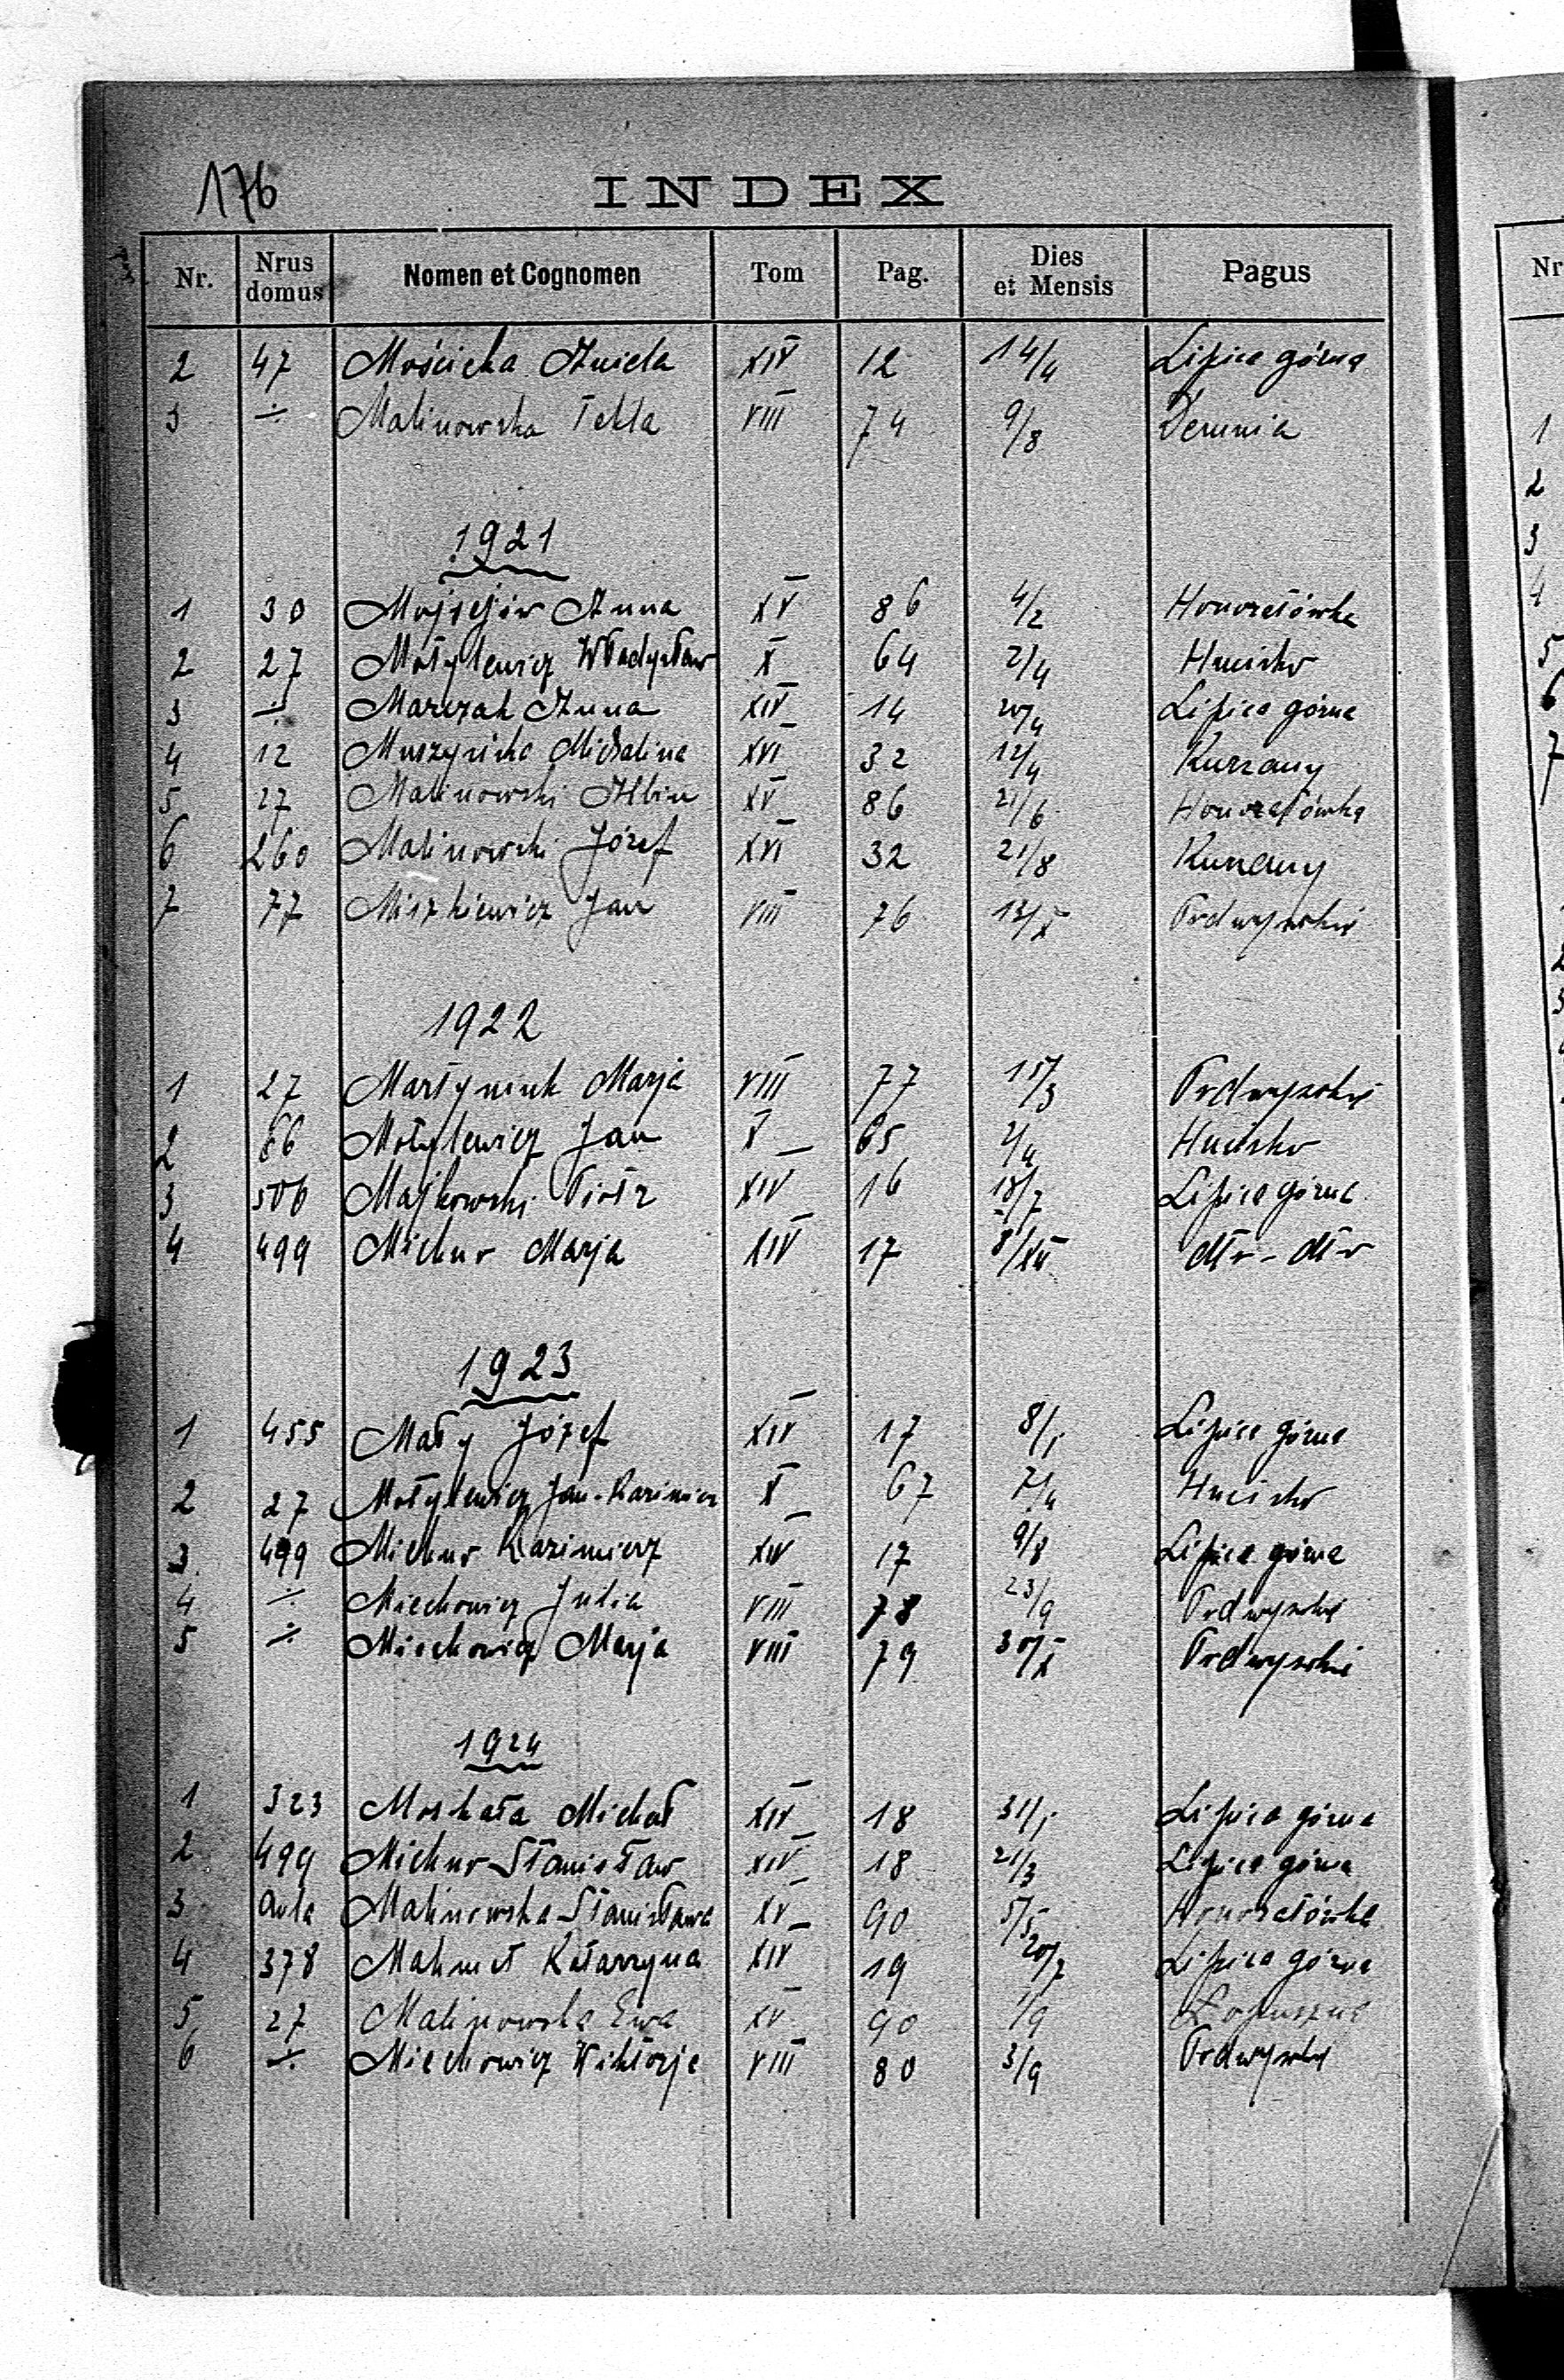 176
INDEX
Nr. Nrus domus Nomen et Cognomen Tom Pag. Dies et Mensis Pagus
2 47 Mościcka Aniela XIV 12 14/4 Lipica górna
3 ÷ Malinowska Tekla VIII 74 9/8 Demnia
1921
1 30 Mojsejów Anna XV 86 4/2 Honoratówka
2 27 Motylewicz Władysław X 64 2/4 Hucisko
3 ÷ Marczak Anna XIV 14 20/4 Lipica górna
4 12 Muszyńska Michalina XVI 32 12/4 Kurzany
5 27 Malinowski Albin XV 86 21/6 Honoratówka
6 260 Malinowski Józef XVI 32 21/8 Kurzany
7 77 Miszkiewicz Jan VIII 76 12/X Podwysokie
1922
1 27 Martyniuk Marja VIII 77 15/3 Podwysokie
2 66 Motylewicz Jan X 65 2/4 Hucisko
3 506 Majkowski Piotr XIV 16 18/7 Lipica górna
4 499 Michno Marja XIV 17 8/XII dto - dto
1923
1 455 Mały Józef XIV 17 8/1 Lipica górna
2 27 Motylewicz Jan-Kazimierz X 67 7/4 Hucisko
3 499 Michno Kazimierz XIV 17 9/8 Lipica górna
4 ÷ Miechowicz Julia VIII 78 23/9 Podwysokie
5 ÷ Miechowicz Marja VIII 79 30/X Podwysokie
1924
1 323 Moskała Michał XIV 18 31/1 Lipica górna
2 499 Michno Stanisław XIV 18 21/3 Lipica górna
3 Aula Malinowska Stanisława XV 90 5/5 Honoratówka
4 378 Mahmet Katarzyna XIV 19 20/7 Lipica górna
5 27 Malinowska Ewa XV 90 1/9 Łopuszna
6 ÷ Miechowicz Wiktorja VIII 80 3/9 Podwysokie
Nr
1
2
3
4
5
6
7